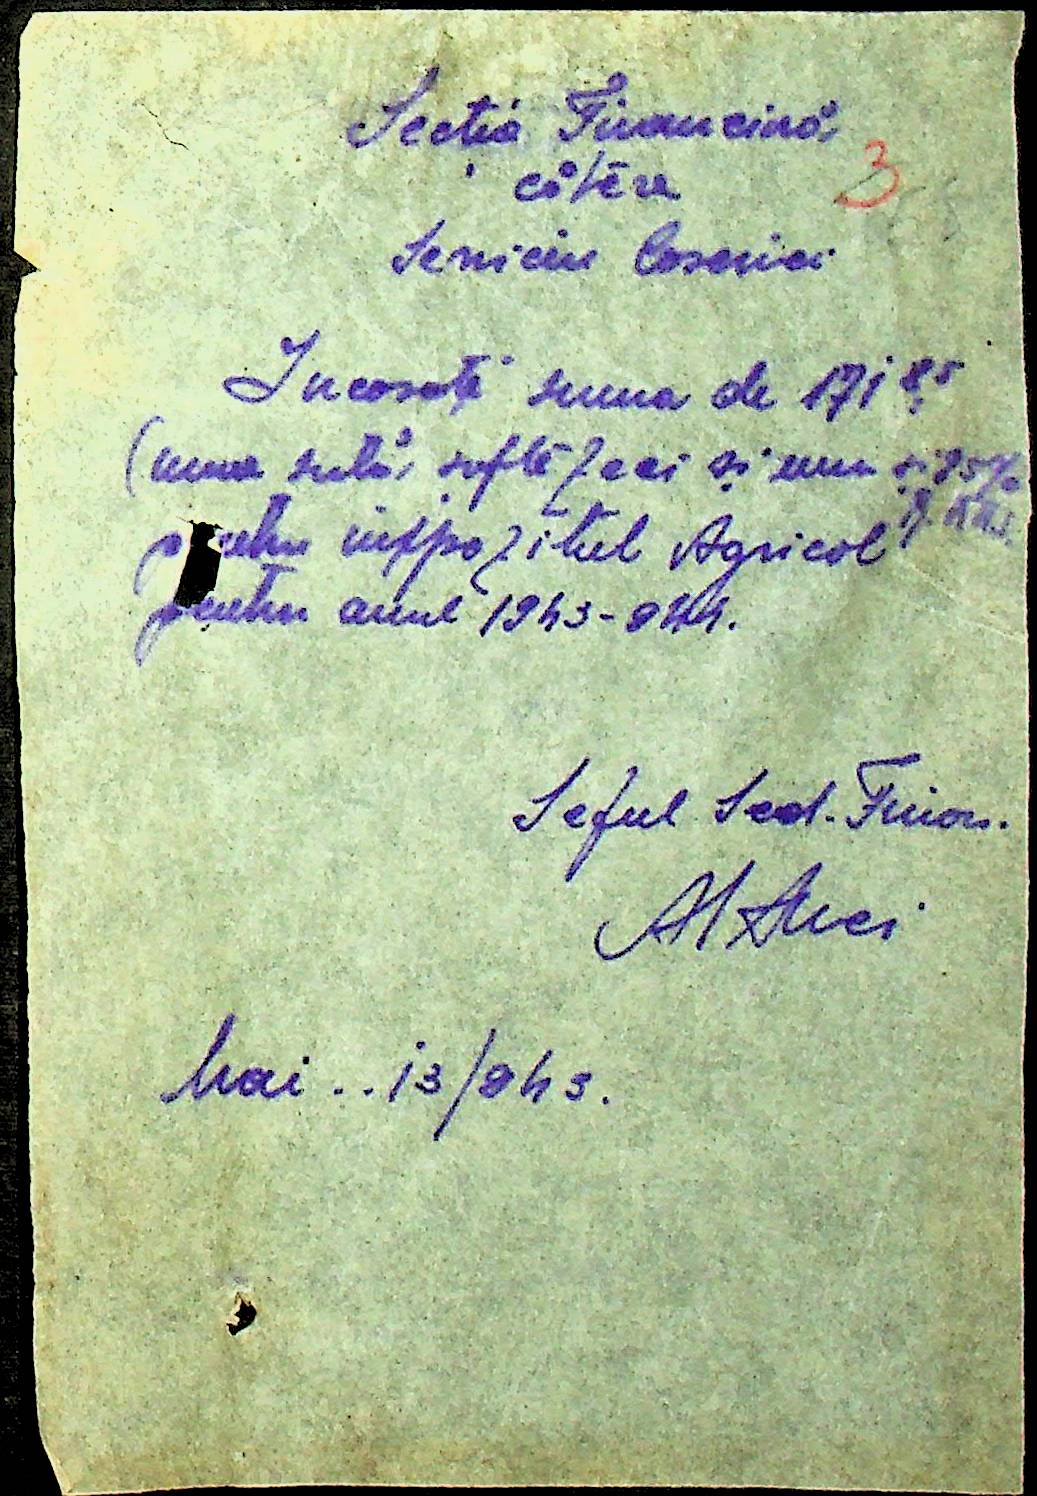 Sectia Financiară
3
cătere
Serviciu Casariei
Incasati suma de 171 85
(una sută, saftezeci și unu și 85%
pentru impozitul Agricol
pentru anul 1943-944.
Seful Sect. Finan.
Mai .. 13/943.